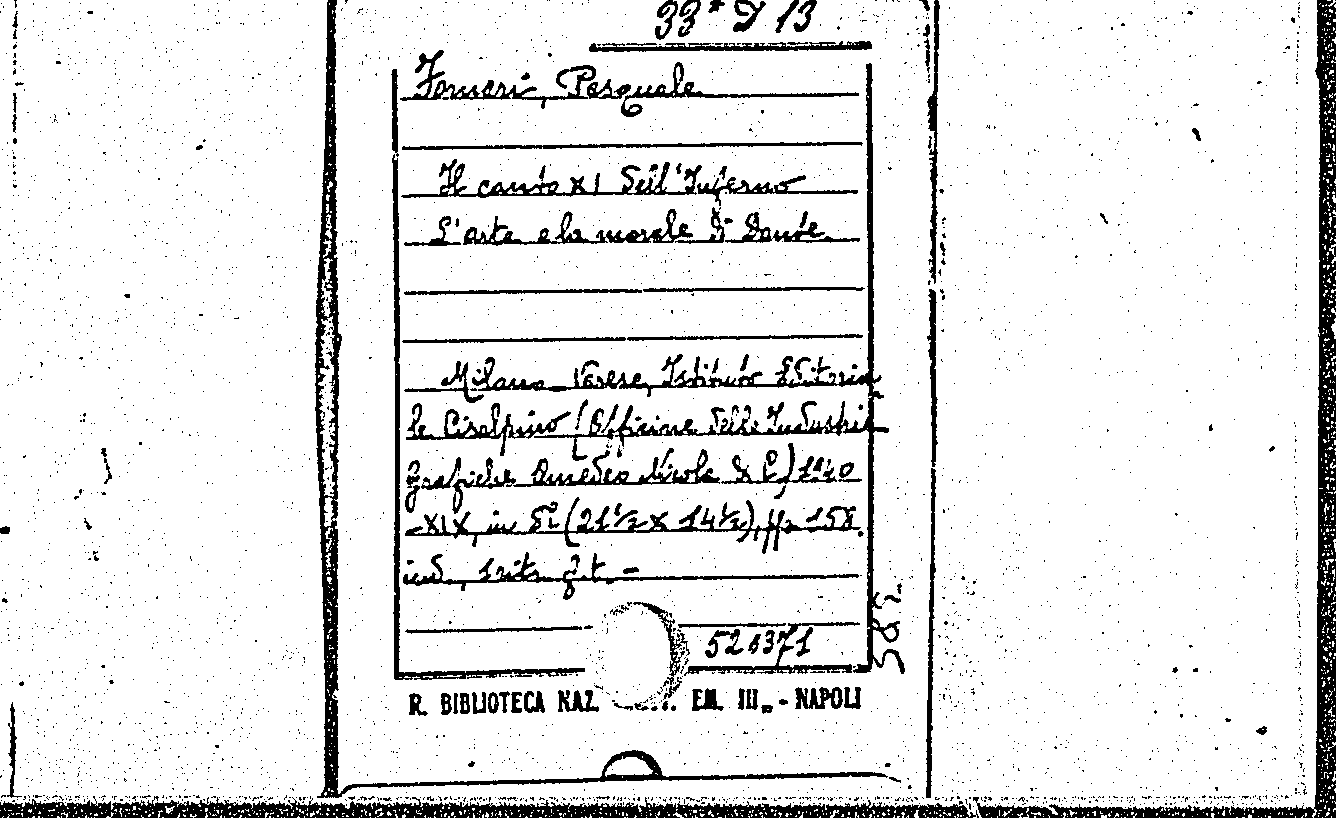 33* D 13
Forneri, Pasquale
Il canto XI dell'Inferno
L'arte e la morale di Dante.
Milano-Varese, Istituto Editoria
le Cisalpino (Officine delle Industrie
Grafiche Amedeo Nicola & C.) 1940
-XIX, in 8° (21½ x 14½), pp. 158.
ritr. f.t. -
R. BIBLIOTECA NAZ. EM. III„ - NAPOLI